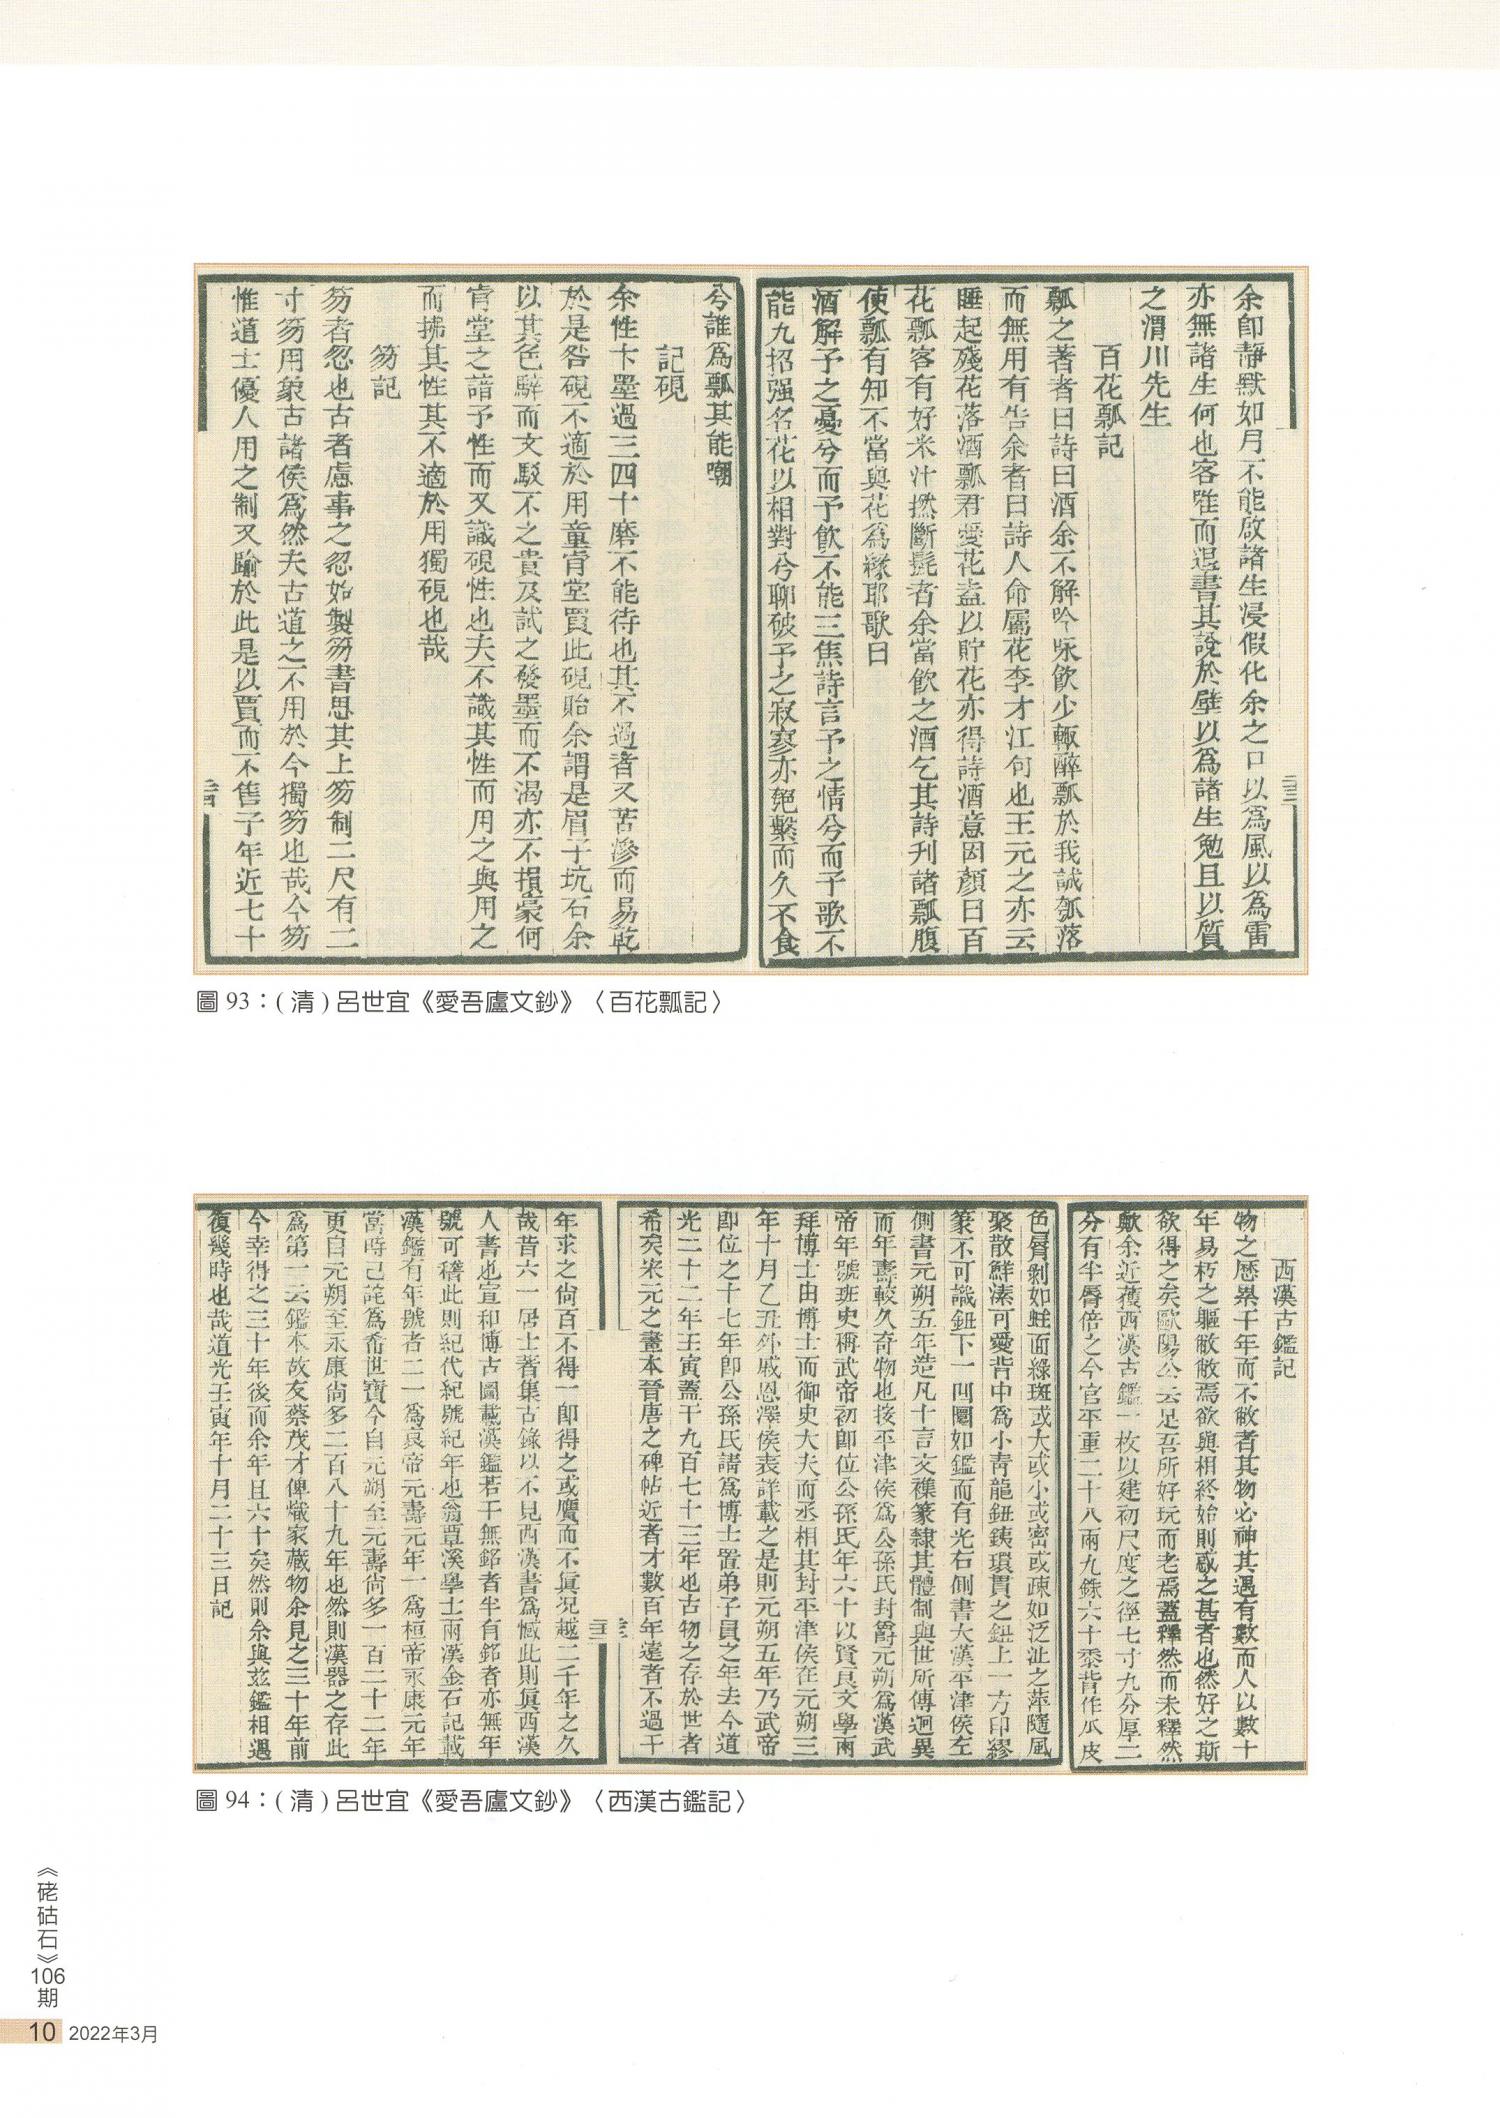 余卽靜默如月不能啟諸生浸假化余之口以爲風以爲雷
亦無諸生何也客唯而退書其說於壁以爲諸生勉且以質
之渭川先生
百花瓢記
瓢之著者曰詩曰酒余不解吟咏飮少輙醉瓢於我誠瓠落
而無用有告余者曰詩人命屬花李才江句也王元之亦云
睡起殘花落酒瓢君愛花盍以貯花亦得詩酒意因顏曰百
花瓢客有好米汁撚斷髭者余當飮之酒乞其詩刋諸瓢腹
使瓢有知不當與花爲緣耶歌曰
酒解予之憂兮而予飮不能三焦詩言予之情兮而予歌不
能九招强名花以相對兮聊破予之寂寥亦匏繫而久不食
兮誰爲瓢其能嘲
記硯
余性卞墨過三四十磨不能待也其不過者又苦滲而易乾
於是咎硯不適於用童肯堂買此硯貽余謂是眉子坑石余
以其色騂而文駁不之貴及試之發墨而不渴亦不損豪何
肯堂之諳予性而又識硯性也夫不識其性而用之與用之
而拂其性其不適於用獨硯也哉
笏記
笏者忽也古者慮事之忽始製笏書思其上笏制二尺有二
寸笏用象古諸侯爲然夫古道之不用於今獨笏也哉今笏
惟道士優人用之制又踰於此是以賈而不售予年近七十
圖 93：( 清 ) 呂世宜《愛吾廬文鈔》〈百花瓢記〉
西漢古鑑記
物之歷累千年而不敝者其物必神其遇有數而人以數十
年易朽之軀敝敝焉欲與相終始則惑之甚者也然好之斯
欲得之矣歐陽公云足吾所好玩而老焉蓋釋然而未釋然
歟余近獲西漢古鑑一枚以建初尺度之徑七寸九分厚二
分有半脣倍之今官平重二十八兩九銖六十黍背作瓜皮
色脣剝如蛀面綠斑或大或小或密或疎如泛沚之萍隨風
聚散鮮溱可愛背中爲小靑龍鈕銕環貫之鈕上一方印繆
篆不可識鈕下一凹圜如鑑而有光右側書大漢平津侯左
側書元朔五年造凡十言文襍篆隸其體制與世所傳迥異
而年壽較久奇物也按平津侯爲公孫氏封爵元朔爲漢武
帝年號班史稱武帝初卽位公孫氏年六十以賢良文學兩
拜博士由博士而御史大夫而丞相其封平津侯在元朔三
年十月乙丑外戚恩澤侯表詳載之是則元朔五年乃武帝
卽位之十七年卽公孫氏請爲博士置弟子員之年去今道
光二十二年壬寅蓋千九百七十三年也古物之存於世者
希矣宋元之畫本晉唐之碑帖近者才數百年遠者不過千
年求之尙百不得一卽得之或贋而不眞况越二千年之久
哉昔六一居士著集古錄以不見西漢書爲憾此則眞西漢
人書也宣和博古圖載漢鑑若干無銘者半有銘者亦無年
號可稽此則紀代紀號紀年也翁覃溪學士兩漢金石記載
漢鑑有年號者二一爲哀帝元壽元年一爲桓帝永康元年
當時已詫爲希世寶今自元朔至元壽尙多一百二十二年
更自元朔至永康尙多二百八十九年也然則漢器之存此
爲第一云鑑本故友蔡茂才俾熾家藏物余見之三十年前
今幸得之三十年後而余年且六十矣然則余與茲鑑相遇
復幾時也哉道光壬寅年十月二十三日記
圖 94：( 清 ) 呂世宜《愛吾廬文鈔》〈西漢古鑑記〉
《硓𥑮石》106期
10 2022年3月